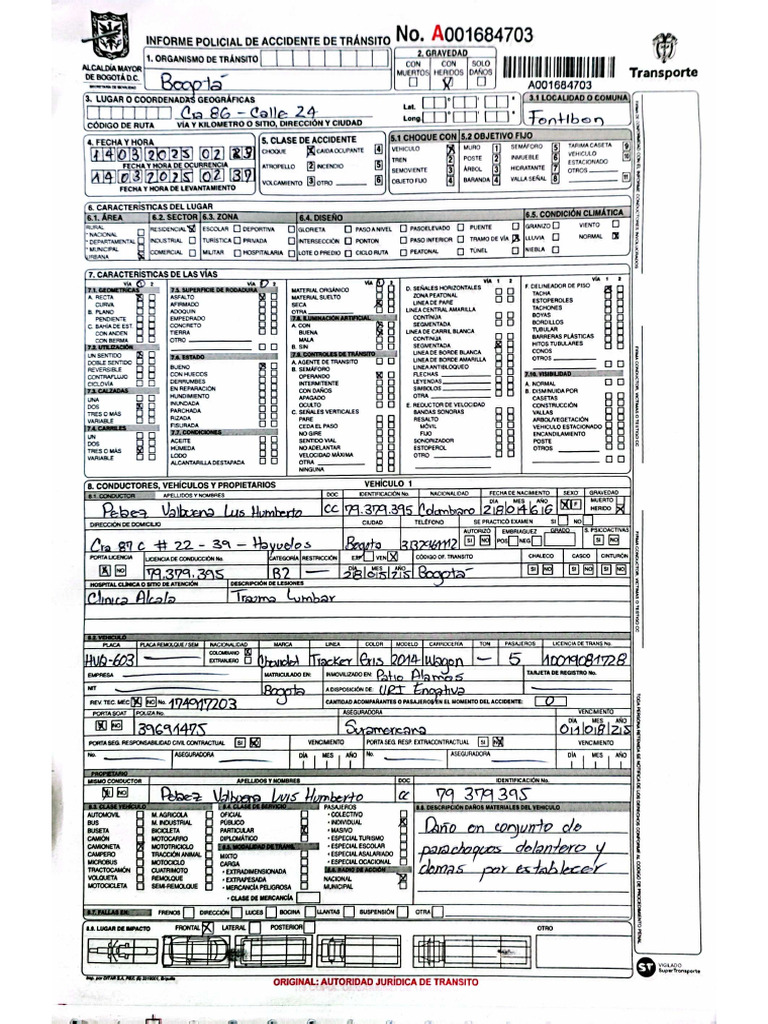 ALCALDÍA MAYOR
DE BOGOTÁ D.C.
SECRETARÍA DE MOVILIDAD
INFORME POLICIAL DE ACCIDENTE DE TRÁNSITO No. A001684703
1. ORGANISMO DE TRÁNSITO
Bogotá
2. GRAVEDAD
CON MUERTOS CON HERIDOS X SOLO DAÑOS
A001684703
Transporte
3. LUGAR O COORDENADAS GEOGRÁFICAS
Cra 86 - Calle 24
Lat.
Long.
3.1 LOCALIDAD O COMUNA
Fontibon
CÓDIGO DE RUTA VÍA Y KILOMETRO O SITIO, DIRECCIÓN Y CIUDAD
4. FECHA Y HORA
14 03 2025 02
FECHA Y HORA DE OCURRENCIA
14 03 2025 02 39
FECHA Y HORA DE LEVANTAMIENTO
5. CLASE DE ACCIDENTE
CHOQUE X CAIDA OCUPANTE 4
ATROPELLO 2 INCENDIO 5
VOLCAMIENTO 3 OTRO 6
5.1 CHOQUE CON
VEHICULO X
TREN 2
SEMOVIENTE 3
OBJETO FIJO 4
5.2 OBJETIVO FIJO
MURO 1 SEMÁFORO 5 TARIMA CASETA 9
POSTE 2 INMUEBLE 6 VEHICULO ESTACIONADO 10
ÁRBOL 3 HIDRATANTE 7 OTROS 11
BARANDA 4 VALLA SEÑAL 8
6. CARACTERÍSTICAS DEL LUGAR
6.1. ÁREA 6.2. SECTOR 6.3. ZONA 6.4. DISEÑO 6.5. CONDICIÓN CLIMÁTICA
RURAL
* NACIONAL
* DEPARTAMENTAL
* MUNICIPAL
URBANA X
RESIDENCIAL X ESCOLAR DEPORTIVA GLORIETA PASO A NIVEL PASOELEVADO PUENTE GRANIZO VIENTO
INDUSTRIAL TURÍSTICA PRIVADA INTERSECCIÓN PONTON PASO INFERIOR TRAMO DE VÍA X LLUVIA NORMAL X
COMERCIAL MILITAR HOSPITALARIA LOTE O PREDIO CICLO RUTA PEATONAL TÚNEL NIEBLA
7. CARACTERÍSTICAS DE LAS VÍAS
VÍA 1 2
7.1. GEOMETRICAS
A. RECTA X
CURVA
B. PLANO
PENDIENTE
C. BAHIA DE EST.
CON ANDEN
CON BERMA
7.2. UTILIZACIÓN
UN SENTIDO X
DOBLE SENTIDO
REVERSIBLE
CONTRAFLUJO
CICLOVÍA
7.3. CALZADAS
UNA
DOS X
TRES O MÁS
VARIABLE
7.4. CARRILES
UN
DOS
TRES O MÁS X
VARIABLE
7.5. SUPERFICIE DE RODADURA
ASFALTO X
AFIRMADO
ADOQUIN
EMPEDRADO
CONCRETO
TIERRA
OTRO
7.6. ESTADO
BUENO X
CON HUECOS
DERRUMBES
EN REPARACIÓN
HUNDIMIENTO
INUNDADA
PARCHADA
RIZADA
FISURADA
7.7. CONDICIONES
ACEITE
HÚMEDA
LODO
ALCANTARILLA DESTAPADA
MATERIAL ORGÁNICO
MATERIAL SUELTO
SECA X
OTRA
7.8. ILUMINACIÓN ARTIFICIAL
A. CON X
BUENA X
MALA
B. SIN
7.9. CONTROLES DE TRÁNSITO
A. AGENTE DE TRANSITO
B. SEMÁFORO
OPERANDO X
INTERMITENTE
CON DAÑOS
APAGADO
OCULTO
C. SEÑALES VERTICALES
PARE
CEDA EL PASO
NO GIRE
SENTIDO VIAL
NO ADELANTAR
VELOCIDAD MÁXIMA
OTRA
NINGUNA
D. SEÑALES HORIZONTALES
ZONA PEATONAL
LINEA DE PARE
LINEA CENTRAL AMARILLA
CONTÍNUA
SEGMENTADA
LINEA DE CARRIL BLANCA
CONTÍNUA
SEGMENTADA X
LINEA DE BORDE BLANCA
LINEA DE BORDE AMARILLA
LINEA ANTIBLOQUEO
FLECHAS
LEYENDAS
SIMBOLOS
OTRA
E. REDUCTOR DE VELOCIDAD
BANDAS SONORAS
RESALTO
MÓVIL
FIJO
SONORIZADOR
ESTOPEROL
OTRO
F. DELINEADOR DE PISO
TACHA
ESTOPEROLES
TACHONES
BOYAS
BORDILLOS
TUBULAR
BARRERAS PLÁSTICAS
HITOS TUBULARES
CONOS
OTROS
7.10. VISIBILIDAD
A. NORMAL
B. DISMINUIDA POR
CASETAS
CONSTRUCCIÓN
VALLAS
ARBOL/VEGETACIÓN
VEHICULO ESTACIONADO
ENCANDILAMIENTO
POSTE
OTROS
8. CONDUCTORES, VEHÍCULOS Y PROPIETARIOS VEHÍCULO 1
8.1. CONDUCTOR APELLIDOS Y NOMBRES DOC IDENTIFICACIÓN No. NACIONALIDAD FECHA DE NACIMIENTO SEXO GRAVEDAD
Pelaez Valbuena Luis Humberto CC 79.379.395 Colombiano 28 04 66 MUERTO HERIDO X
DIRECCIÓN DE DOMICILIO CIUDAD TELÉFONO SE PRACTICÓ EXAMEN SI NO
Cra 87 C # 22 - 39 - Hayuelos Bogota
AUTORIZÓ SI NO EMBRIAGUEZ POS NEG GRADO S. PSICOACTIVAS SI NO
PORTA LICENCIA LICENCIA DE CONDUCCIÓN No. CATEGORÍA RESTRICCIÓN EXP VEN X CÓDIGO OF. TRANSITO CHALECO CASCO CINTURÓN
X NO 79.379.395 B2 — 28 05 25 Bogotá SI NO SI NO SI NO
HOSPITAL CLINICA O SITIO DE ATENCIÓN DESCRIPCIÓN DE LESIONES
Clinica Alcala Trauma Lumbar
8.2. VEHICULO
PLACA PLACA REMOLQUE / SEM NACIONALIDAD MARCA LINEA COLOR MODELO CARROCERÍA TON PASAJEROS LICENCIA DE TRANS No.
HVQ-603 — COLOMBIANO X EXTRANJERO Chevrolet Tracker Gris 2014 Wagon — 5 10019081728
EMPRESA MATRICULADO EN: INMOVILIZADO EN: Patio Alamos TARJETA DE REGISTRO No.
NIT Bogota A DISPOSICIÓN DE: URI Engativa
REV. TEC. MEC X NO No. 174917203 CANTIDAD ACOMPAÑANTES O PASAJEROS EN EL MOMENTO DEL ACCIDENTE: 0
PORTA SOAT POLIZA No. ASEGURADORA VENCIMIENTO
X NO 39691475 Suramericana DÍA MES AÑO 01 08 25
PORTA SEG. RESPONSABILIDAD CIVIL CONTRACTUAL SI X VENCIMIENTO PORTA SEG. RESP. EXTRACONTRACTUAL SI X VENCIMIENTO
No. ASEGURADORA DÍA MES AÑO No. ASEGURADORA DÍA MES AÑO
PROPIETARIO
MISMO CONDUCTOR APELLIDOS Y NOMBRES DOC IDENTIFICACIÓN No.
X NO Pelaez Valbuena Luis Humberto CC 79 379.395
8.3. CLASE VEHÍCULO
AUTOMOVIL M. AGRICOLA
BUS M. INDUSTRIAL
BUSETA BICICLETA
CAMIÓN MOTOCARRO
CAMIONETA X MOTOTRICICLO
CAMPERO TRACCIÓN ANIMAL
MICROBUS MOTOCICLO
TRACTOCAMIÓN CUATRIMOTO
VOLQUETA REMOLQUE
MOTOCICLETA SEMI-REMOLQUE
8.4. CLASE DE SERVICIO
OFICIAL
PÚBLICO
PARTICULAR X
DIPLOMÁTICO
8.5. MODALIDAD DE TRANS.
MIXTO
CARGA
* EXTRADIMENSIONADA
* EXTRAPESADA
* MERCANCÍA PELIGROSA
* CLASE DE MERCANCÍA
PASAJEROS
* COLECTIVO
* INDIVIDUAL X
* MASIVO
* ESPECIAL TURISMO
* ESPECIAL ESCOLAR
* ESPECIAL ASALARIADO
* ESPECIAL OCACIONAL
8.6. RADIO DE ACCIÓN
NACIONAL X
MUNICIPAL
8.8. DESCRIPCIÓN DAÑOS MATERIALES DEL VEHICULO
Daño en conjunto de
parachoques delantero y
demas por establecer
8.7. FALLAS EN: FRENOS DIRECCIÓN LUCES BOCINA LLANTAS SUSPENSIÓN OTRA
8.9. LUGAR DE IMPACTO FRONTAL X LATERAL POSTERIOR OTRO
ST VIGILADO
SuperTransporte
ORIGINAL: AUTORIDAD JURÍDICA DE TRANSITO